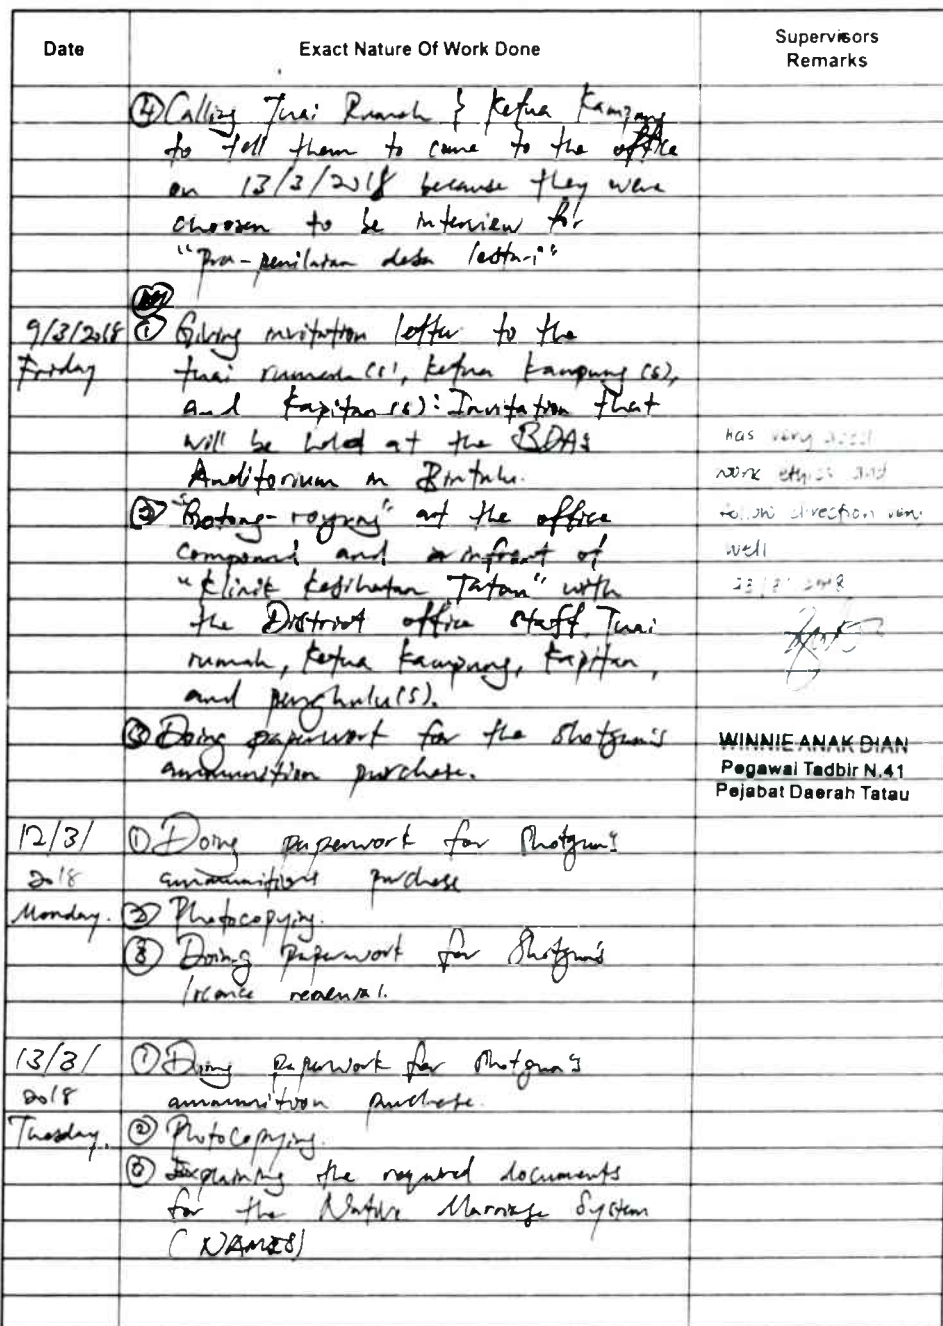 Date
Exact Nature Of Work Done
Supervisors
Remarks
④ Calling Tuai Rumah & Ketua Kampung
to tell them to come to the office
on 13/3/2018 because they were
choosen to be interview for
"Pra-penilaian desa lestari"
9/3/2018 ① Giving invitation letter to the
Friday tuai rumah(s), ketua kampung(s),
and Kapitan(s): Invitation that
will be held at the BDA's
Auditorium in Bintulu.
② "Gotong-royong" at the office
compound and infront of
"Klinik Kesihatan Tatau" with
the District office staff, Tuai
rumah, Ketua Kampung, Kapitan,
and penghulu(s).
③ Doing paperwork for the shotgun's
ammunition purchase.
has very good
work ethics and
follow direction very
well
WINNIE ANAK DIAN
Pegawai Tadbir N.41
Pejabat Daerah Tatau
12/3/ ① Doing paperwork for Shotgun's
2018 ammunitions purchase
Monday. ② Photocopying.
③ Doing paperwork for Shotgun's
licence renewal.
13/3/ ① Doing paperwork for Shotgun's
2018 ammunition purchase.
Tuesday. ② Photocopying.
③ Explaining the required documents
for the Native Marriage System
(NAMES)